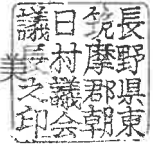 長野県東
筑摩郡朝
日村議会
議長之印
美